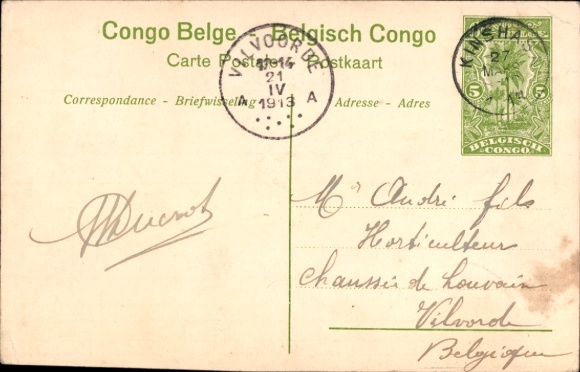 Congo Belge - Belgisch Congo
Carte Postale - Postkaart
Correspondance - Briefwisseling
Adresse - Adres
VILVOORDE
13-14
21
IV
1913
A A
KINSHASA
27
5 5
BELGISCH
CONGO
Mr André fils
Horticulteur
Chaussée de Louvain
Vilvorde
Belgique